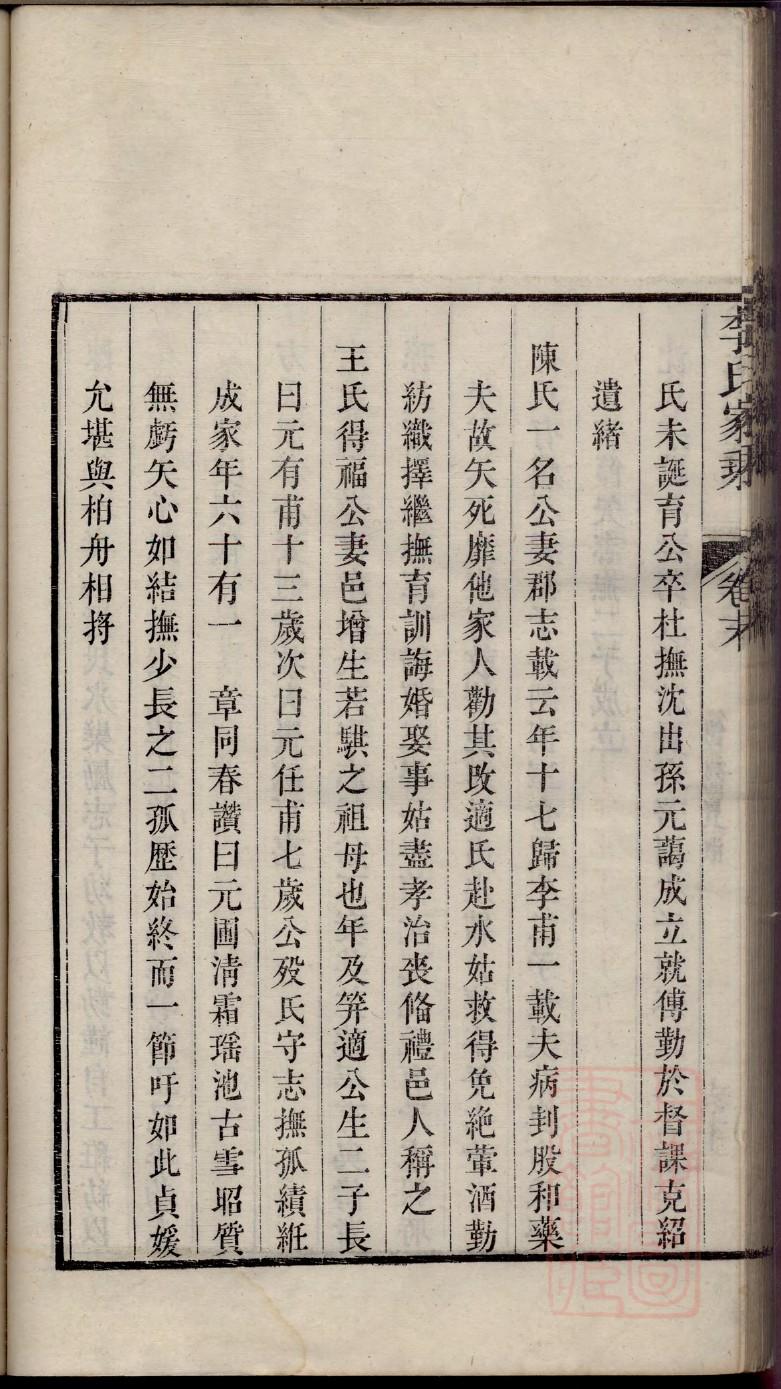 李氏家乘 卷末
氏未誕育公卒杜撫沈出孫元藹成立就傅勤於督課克紹
遺緒
陳氏一名公妻郡志載云年十七歸李甫一載夫病刲股和藥
夫故矢死靡他家人勸其改適氏赴水姑救得免絶葷酒勤
紡織擇繼撫育訓誨婚娶事姑盡孝治喪俻禮邑人稱之
王氏得福公妻邑增生若騏之祖母也年及笄適公生二子長
曰元有甫十三歲次曰元任甫七歲公歿氏守志撫孤績紝
成家年六十有一 章同春讚曰元圃清霜瑶池古雪昭質
無虧矢心如結撫少長之二孤歴始終而一節吁如此貞媛
允堪與柏舟相將